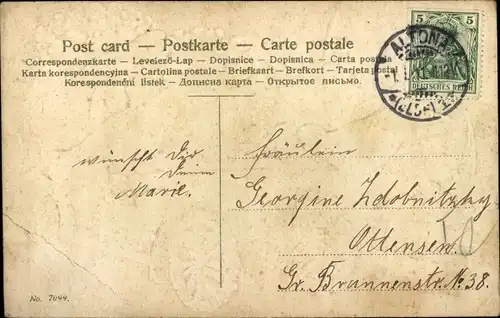 Post card — Postkarte — Carte postale
Correspondenzkarte — Levelező-Lap — Dopisnice — Dopisnica — Carta postala
Karta korespondencyjna — Cartolina postale — Briefkaart — Brefkort — Tarjeta postal
Korespondenční lístek — Дописна карта — Открытое письмо.
5 5
ALTONA
DEUTSCHES REICH
wünscht Dir
Deine
Marie.
Fräulein
Georgine Zdobnitzky
Ottensen
Gr. Brunnenstr. No. 38.
No. 7099.